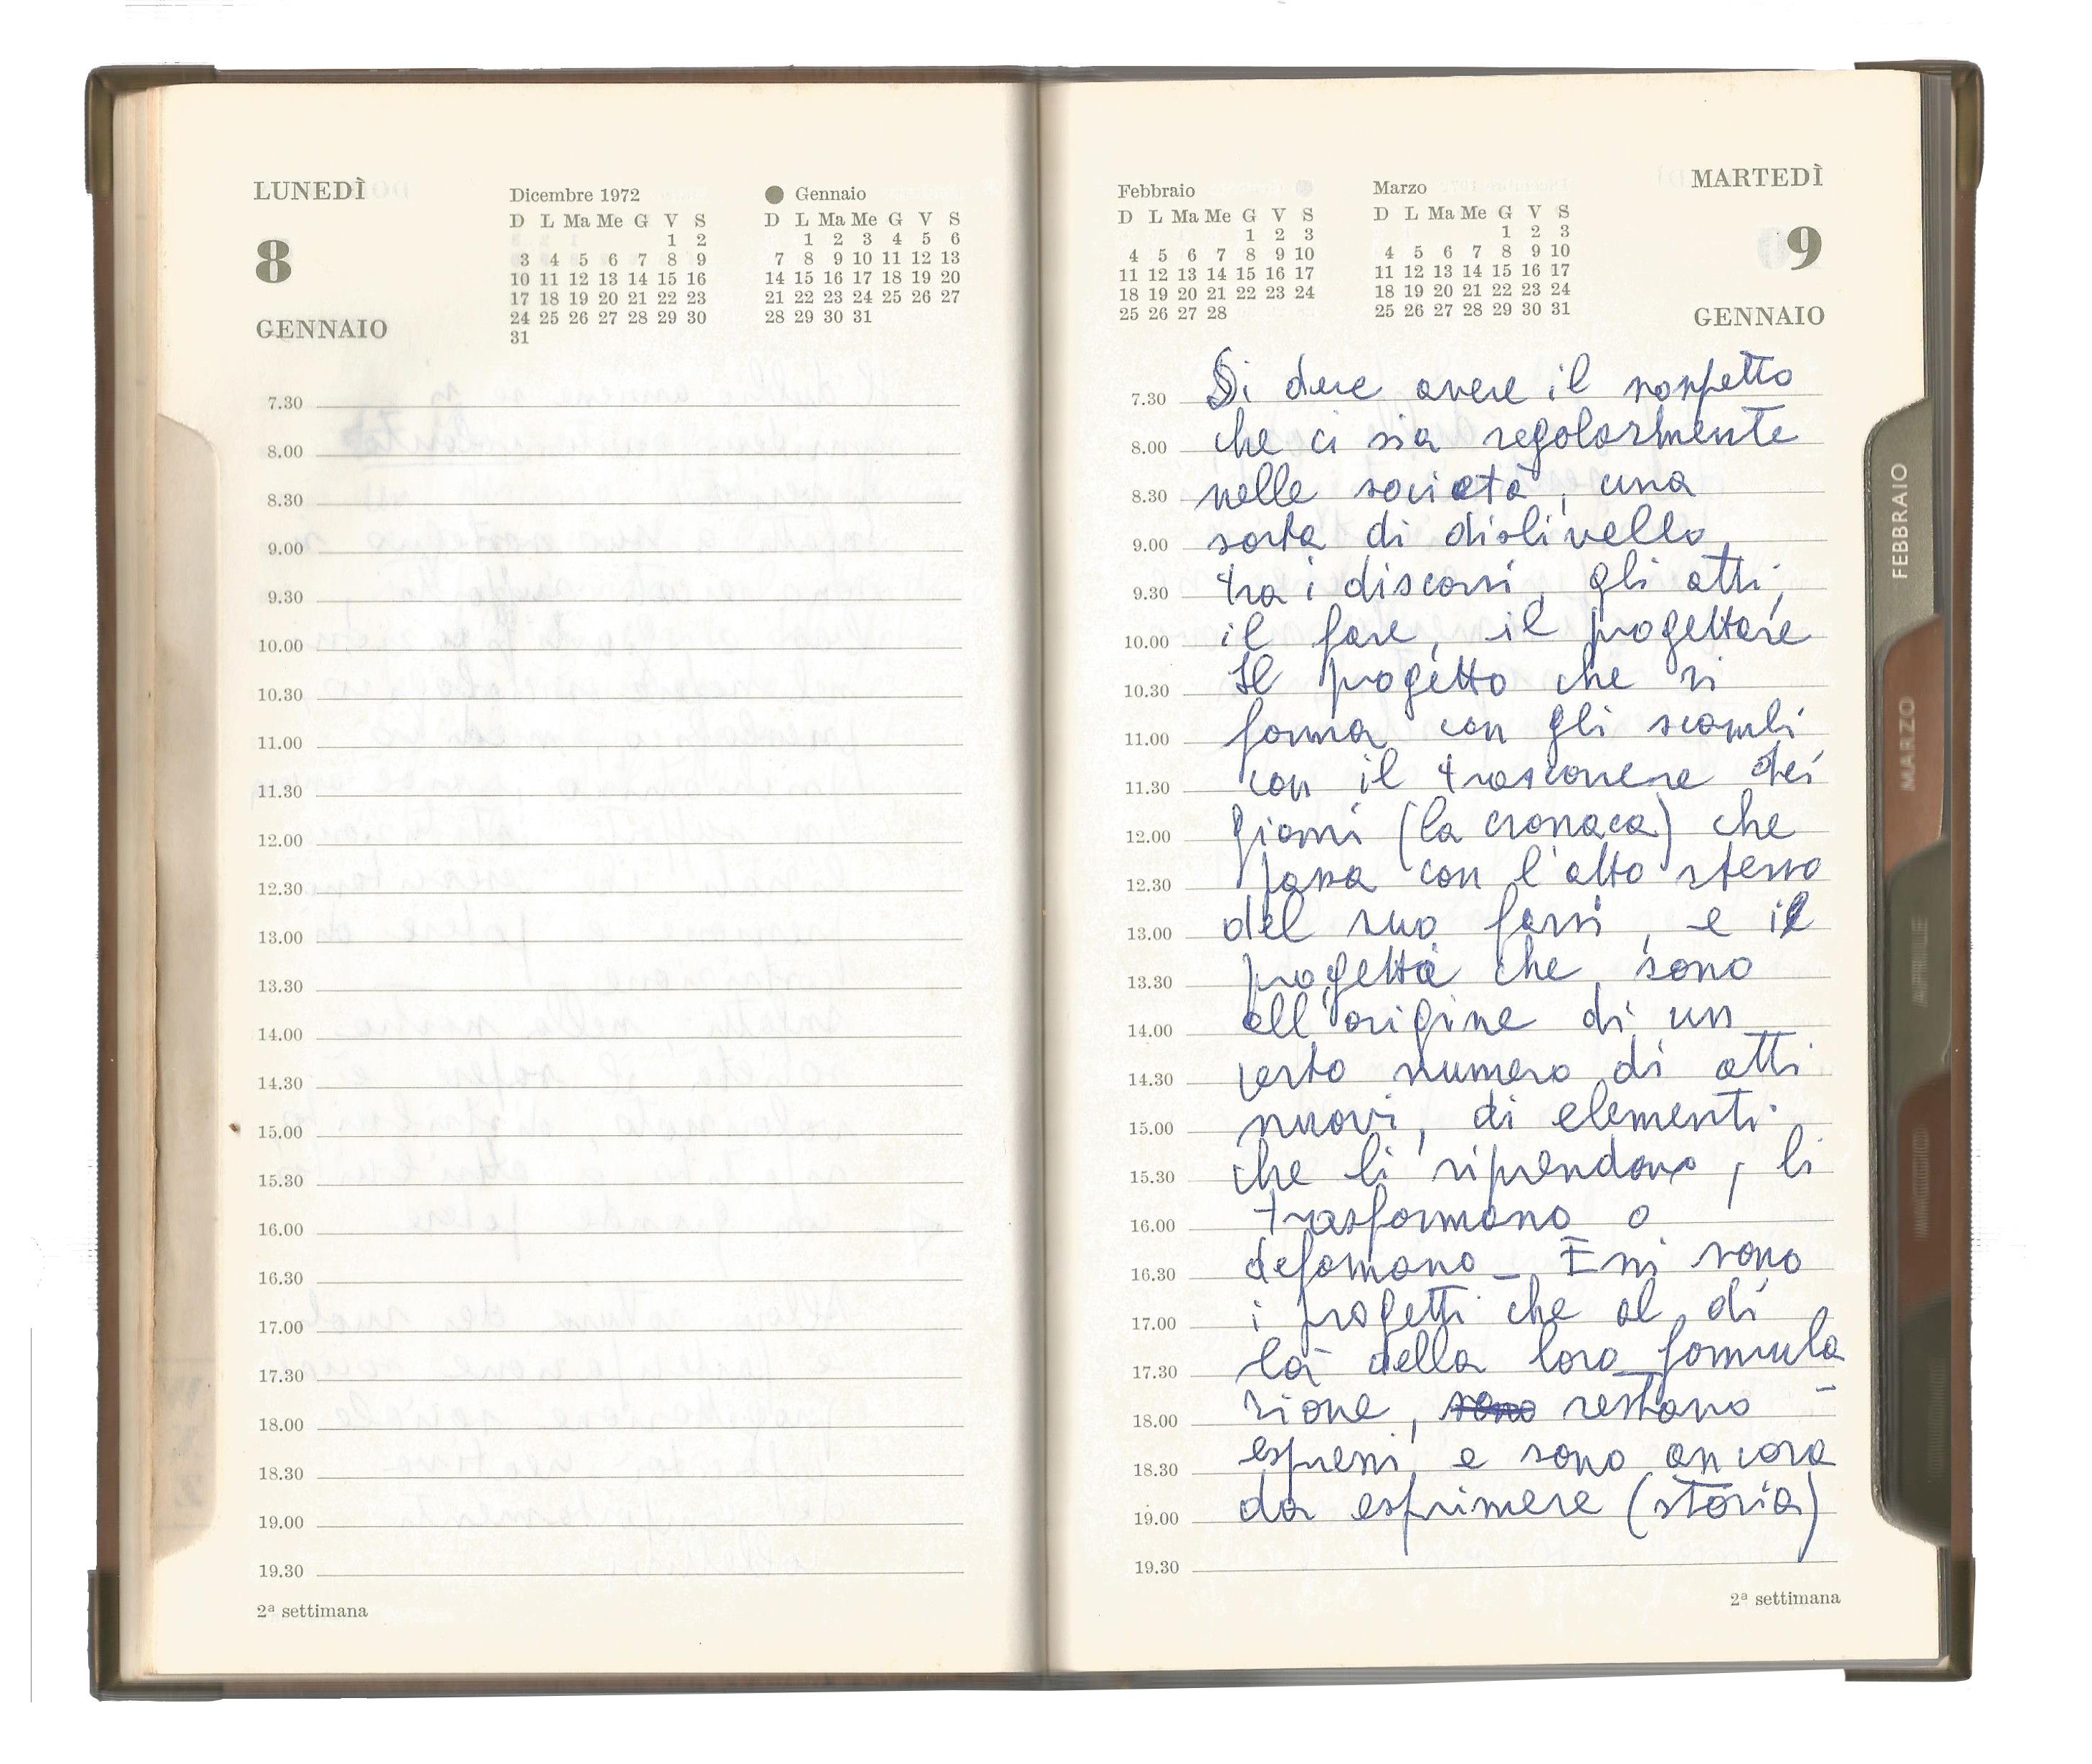 LUNEDÌ
8
GENNAIO
Dicembre 1972
D L Ma Me G V S
1 2
3 4 5 6 7 8 9
10 11 12 13 14 15 16
17 18 19 20 21 22 23
24 25 26 27 28 29 30
31
Gennaio
D L Ma Me G V S
1 2 3 4 5 6
7 8 9 10 11 12 13
14 15 16 17 18 19 20
21 22 23 24 25 26 27
28 29 30 31
7.30
8.00
8.30
9.00
9.30
10.00
10.30
11.00
11.30
12.00
12.30
13.00
13.30
14.00
14.30
15.00
15.30
16.00
16.30
17.00
17.30
18.00
18.30
19.00
19.30
2ª settimana
Febbraio
D L Ma Me G V S
1 2 3
4 5 6 7 8 9 10
11 12 13 14 15 16 17
18 19 20 21 22 23 24
25 26 27 28
Marzo
D L Ma Me G V S
1 2 3
4 5 6 7 8 9 10
11 12 13 14 15 16 17
18 19 20 21 22 23 24
25 26 27 28 29 30 31
MARTEDÌ
9
GENNAIO
7.30 Si deve avere il sospetto
8.00 che ci sia regolarmente
8.30 nelle società, una
9.00 sorta di dislivello
9.30 tra i discorsi, gli atti,
10.00 il fare, il progettare
10.30 Il progetto che si
11.00 forma con gli scambi
11.30 con il trascorrere dei
12.00 giorni (la cronaca) che
12.30 passa con l'atto stesso
13.00 del suo farsi, e il
13.30 progetti che sono
14.00 all'origine di un
14.30 certo numero di atti
15.00 nuovi, di elementi
15.30 che li riprendono, li
16.00 trasformano o
16.30 defomano _ Essi sono
17.00 i progetti che al di
17.30 là della loro formula
18.00 zione, sono restano -
18.30 espressi, e sono ancora
19.00 da esprimere (storia)
19.30
2ª settimana
FEBBRAIO
MARZO
APRILE